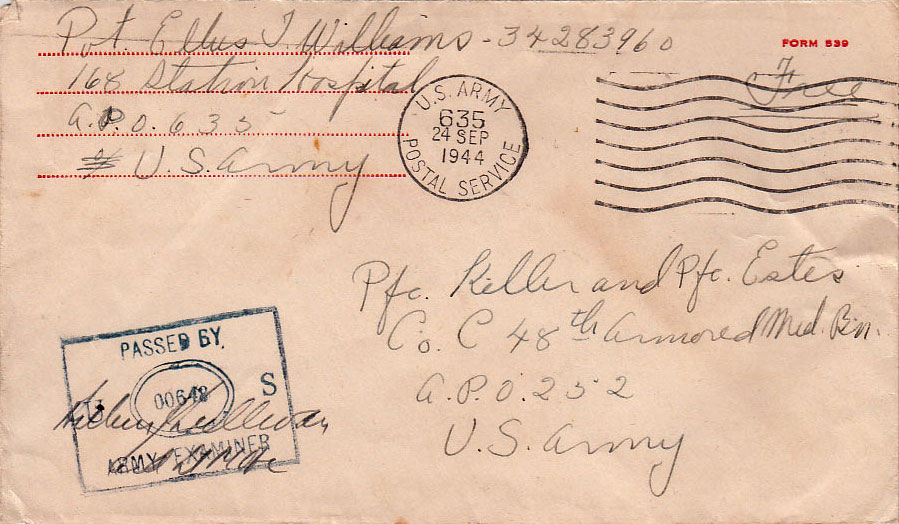 Pvt. Ellus T. Williams - 34283960
168 Station Hospital
A.P.O. 635
U.S. Army
FORM 539
Free
U.S. ARMY
635
24 SEP
1944
POSTAL SERVICE
Pfc. Keller and Pfc. Estes
Co. C 48th Armored Med. Bn.
A.P.O. 252
U.S. Army
PASSED BY
00648
U S
ARMY EXAMINER